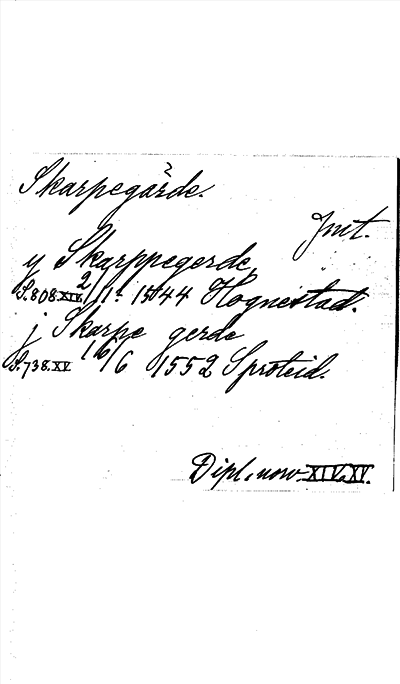 Skarpegärde.
Jmt.
y Skarppegerde
S. 808. XIV. 2/1 1544 Hognestad.
j Skarpe gerde
S. 738. XV 16/6 1552 Sproteid.
Dipl. norv. XIV. XV.